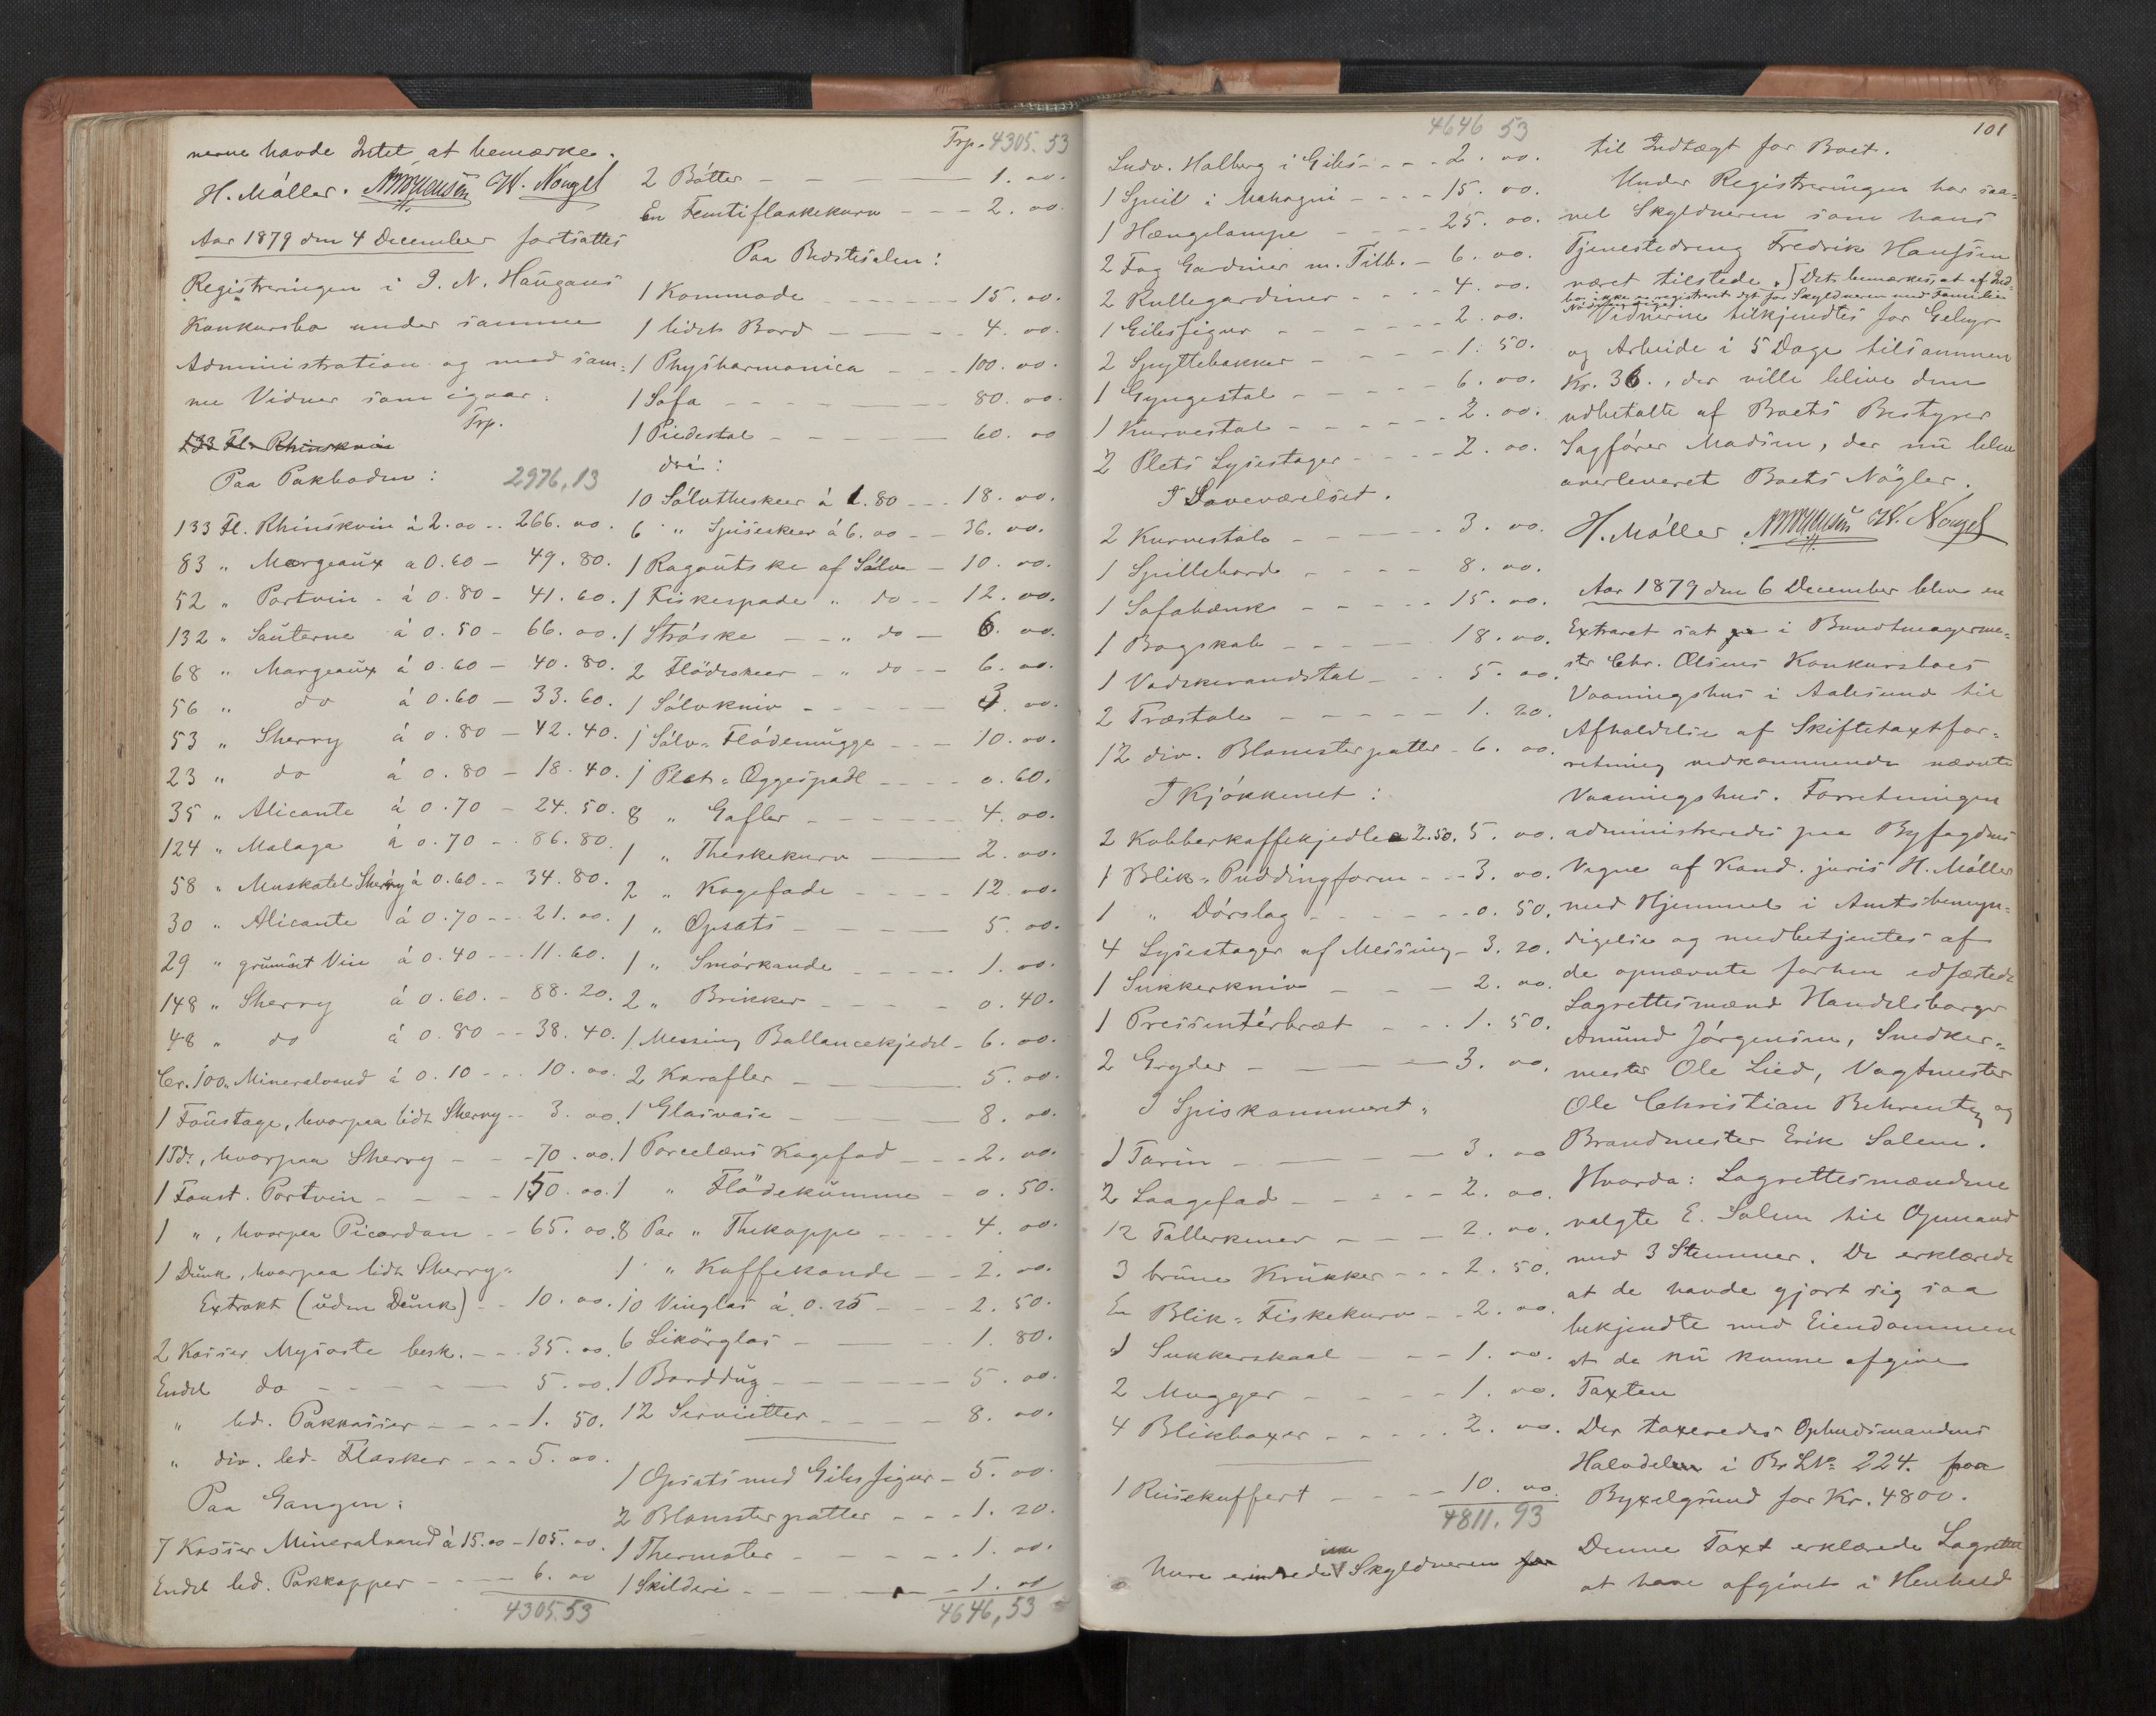 nerne havde Intet at bemærke.
H. Móller. W. Nougel
Aar 1879 den 4 December fortsattes
Registreringen i J. N. Haugans
Konkursbo under samme
Administration og med sam-
me Vidner som igaar.
Trp.
133 Fl. Rhinskvin
Paa Pakboden: 2976,13
133 Fl. Rhinskvin à 2.00 - 266.00.
83 " Margeaux a 0.60 - 49.80.
52 " Portvin à 0.80 - 41.60.
132 " Sauterne à 0.50 - 66.00.
68 " Margeaux á 0.60 - 40.80.
56 " do á 0.60 - 33.60.
53 " Sherry á 0.80 - 42.40.
23 " do á 0.80 - 18.40.
35 " Alicante á 0.70 - 24.50.
124 " Malaga á 0.70 - 86.80.
58 " Muskatel Sherry á 0.60 - 34.80.
30 " Alicante á 0.70 - 21.00.
29 " grumset Vin á 0.40 - 11.60.
148 " Sherry á 0.60. - 88.20.
48 " do á 0.80 - 38.40.
Cr. 100. Mineralvand á 0.10 - 10.00.
1 Foustage, hvorpaa lidt Sherry - 3.00.
1 Td., hvorpaa Sherry - 70.00.
1 Foust. Portvin - 150.00.
1 ", hvorpaa Picardan - 65.00.
1 Dunk, hvorpaa lidt Sherry-
Extrakt (uden Dunk) - 10.00.
2 Kasser Mysoste besk. - 35.00.
Endel do - 5.00.
" led. Pakkasser - 1.50.
" div. led. Flasker - 5.00.
Paa Gangen:
7 Kasser Mineralvand á 15.00 - 105.00.
Endel led. Pakkopper - 6.00
4305.53
Trp. 4305.53
2 Bótter - 1.00.
En Femtiflaskekurv - 2.00.
Paa Bedstesalen:
1 Kommode - 15.00.
1 lidet Bord - 4.00.
1 Physharmonica - 100.00.
1 Sofa - 80.00.
1 Piedestal - 60.00
deri:
10 Sólvtheskeer à 1.80 - 18.00.
6 " Spiseskeer á 6.00 - 36.00.
1 Ragoutske af Sólv - 10.00.
1 Fiskespade " do - 12.00.
1 Stróske - " do - 6.00.
2 Flódeskeer - " do - 6.00.
1 Sólvkniv - 3.00.
1 Sólv-Flódemugge - 10.00.
1 Plet-Æggespade - 0.60.
8 " Gafler - 4.00.
1 " Theskekurv - 2.00.
2 " Kagefade - 12.00.
1 " Opsats - 5.00.
1 " Smórkande - 1.00.
2 " Brikker - 0.40.
1 Messing Ballancekjedel - 6.00.
2 Karafler - 5.00.
1 Glasvase - 8.00.
1 Porcelæns Kagefad - 2.00.
1 " Flódekumme - 0.50.
8 Par " Thekoppe - 4.00.
1 " Kaffekande - 2.00.
10 Vinglas á 0.25 - 2.50.
6 Likórglas - 1.80.
1 Borddug - 5.00.
12 Servietter - 8.00.
1 Opsats med Gibsfigur - 5.00.
2 Blomsterpotter - 1.20.
1 Thermoter - 1.00.
1 Skilderi - 1.00
4646,53
4646 53
Ludv. Holberg i Gibs - 2.00.
1 Speil i Mahogni - 15.00.
1 Hængelampe - 25.00.
2 Fag Gardiner m. Tilb. - 6.00.
2 Rullegardiner - 4.00.
1 Gibsfigur - 2.00.
2 Spyttebakker - 1.50.
1 Gyngestol - 6.00.
1 Kurvestol - 2.00.
2 Plets Lysestager - 2.00.
I Soveværelset.
2 Kurvestole - 3.00.
1 Spillebord - 8.00.
1 Sofabænk - 15.00.
1 Bogskab - 18.00.
1 Vadskevandstol - 5.00.
2 Træstole - 1.20.
12 div. Blomsterpotter - 6.00.
I Kjókkenet:
2 Kobberkaffekjedle a 2.50. 5.00.
1 Blik-Puddingform - 3.00.
1 " Dórslag - 0.50.
4 Lysestager af Messing - 3.20.
1 Sukkerkniv - 2.00.
1 Pressentérbræt - 1.50.
2 Gryder - 3.00.
I Spiskammeret.
1 Tarin - 3.00
2 Laagefad - 2.00.
12 Tallerkener - 2.00.
3 brune Krukker - 2.50.
En Blik-Fiskekurv - 2.00.
1 Sukkerskaal - 1.00.
2 Mugger - 1.00.
4 Blikboxer - 2.00.
1 Reisekuffert - 10.00.
4811.93
Mere erindrede Skyldneren
101
til Indtægt for Boet.
Under Registreringen har saa-
vel Skyldneren som hans
Tjenestedreng Fredrik Hanssen
været tilstede. Det bemærkes, at af Ind-
bo ikke er registreret det for Skyldneren med Familie
Nødvendige
Vidnerne tilkjendtes for Gebyr
og Arbeide i 5 Dage tilsammen
Kr. 36., der ville blive dem
udbetalte af Boets Bestyrer
Sagfórer Madsen, der nu blev
overleveret Boets Nógler.
H. Móller W. Nougel
Aar 1879 den 6 December blev en
Extraret sat i Bundtmagerme-
ster Chr. Olsens Konkursboes
Vaaningshus i Aalesund til
Afholdelse af Skiftetaxtfor-
retning vedkommende nævnte
Vaaningshus. Forretningen
administreredes paa Byfogdens
Vegne af Kand. juris H. Móller
med Hjemmel i Amtsbemyn-
digelse og medbetjentes af
de opnævnte forhen edfæstede
Lagrettesmænd Handelsborger
Amund Jórgensen, Snedker-
mester Ole Lied, Vagtmester
Ole Christian Behrentz og
Brandmester Erik Solem.
Hvorda: Lagrettesmændene
valgte E. Solem til Opmand
med 3 Stemmer. De erklærede
at de havde gjort sig saa
bekjendte med Eiendommen
at de nu kunne afgive
Taxten
Der taxeredes Opbudsmandens
Halvdel i Br. L. No 224. paa
Byxelgrund for Kr. 4800.
Denne Taxt erklærede Lagretten
at have afgivet i Henhold